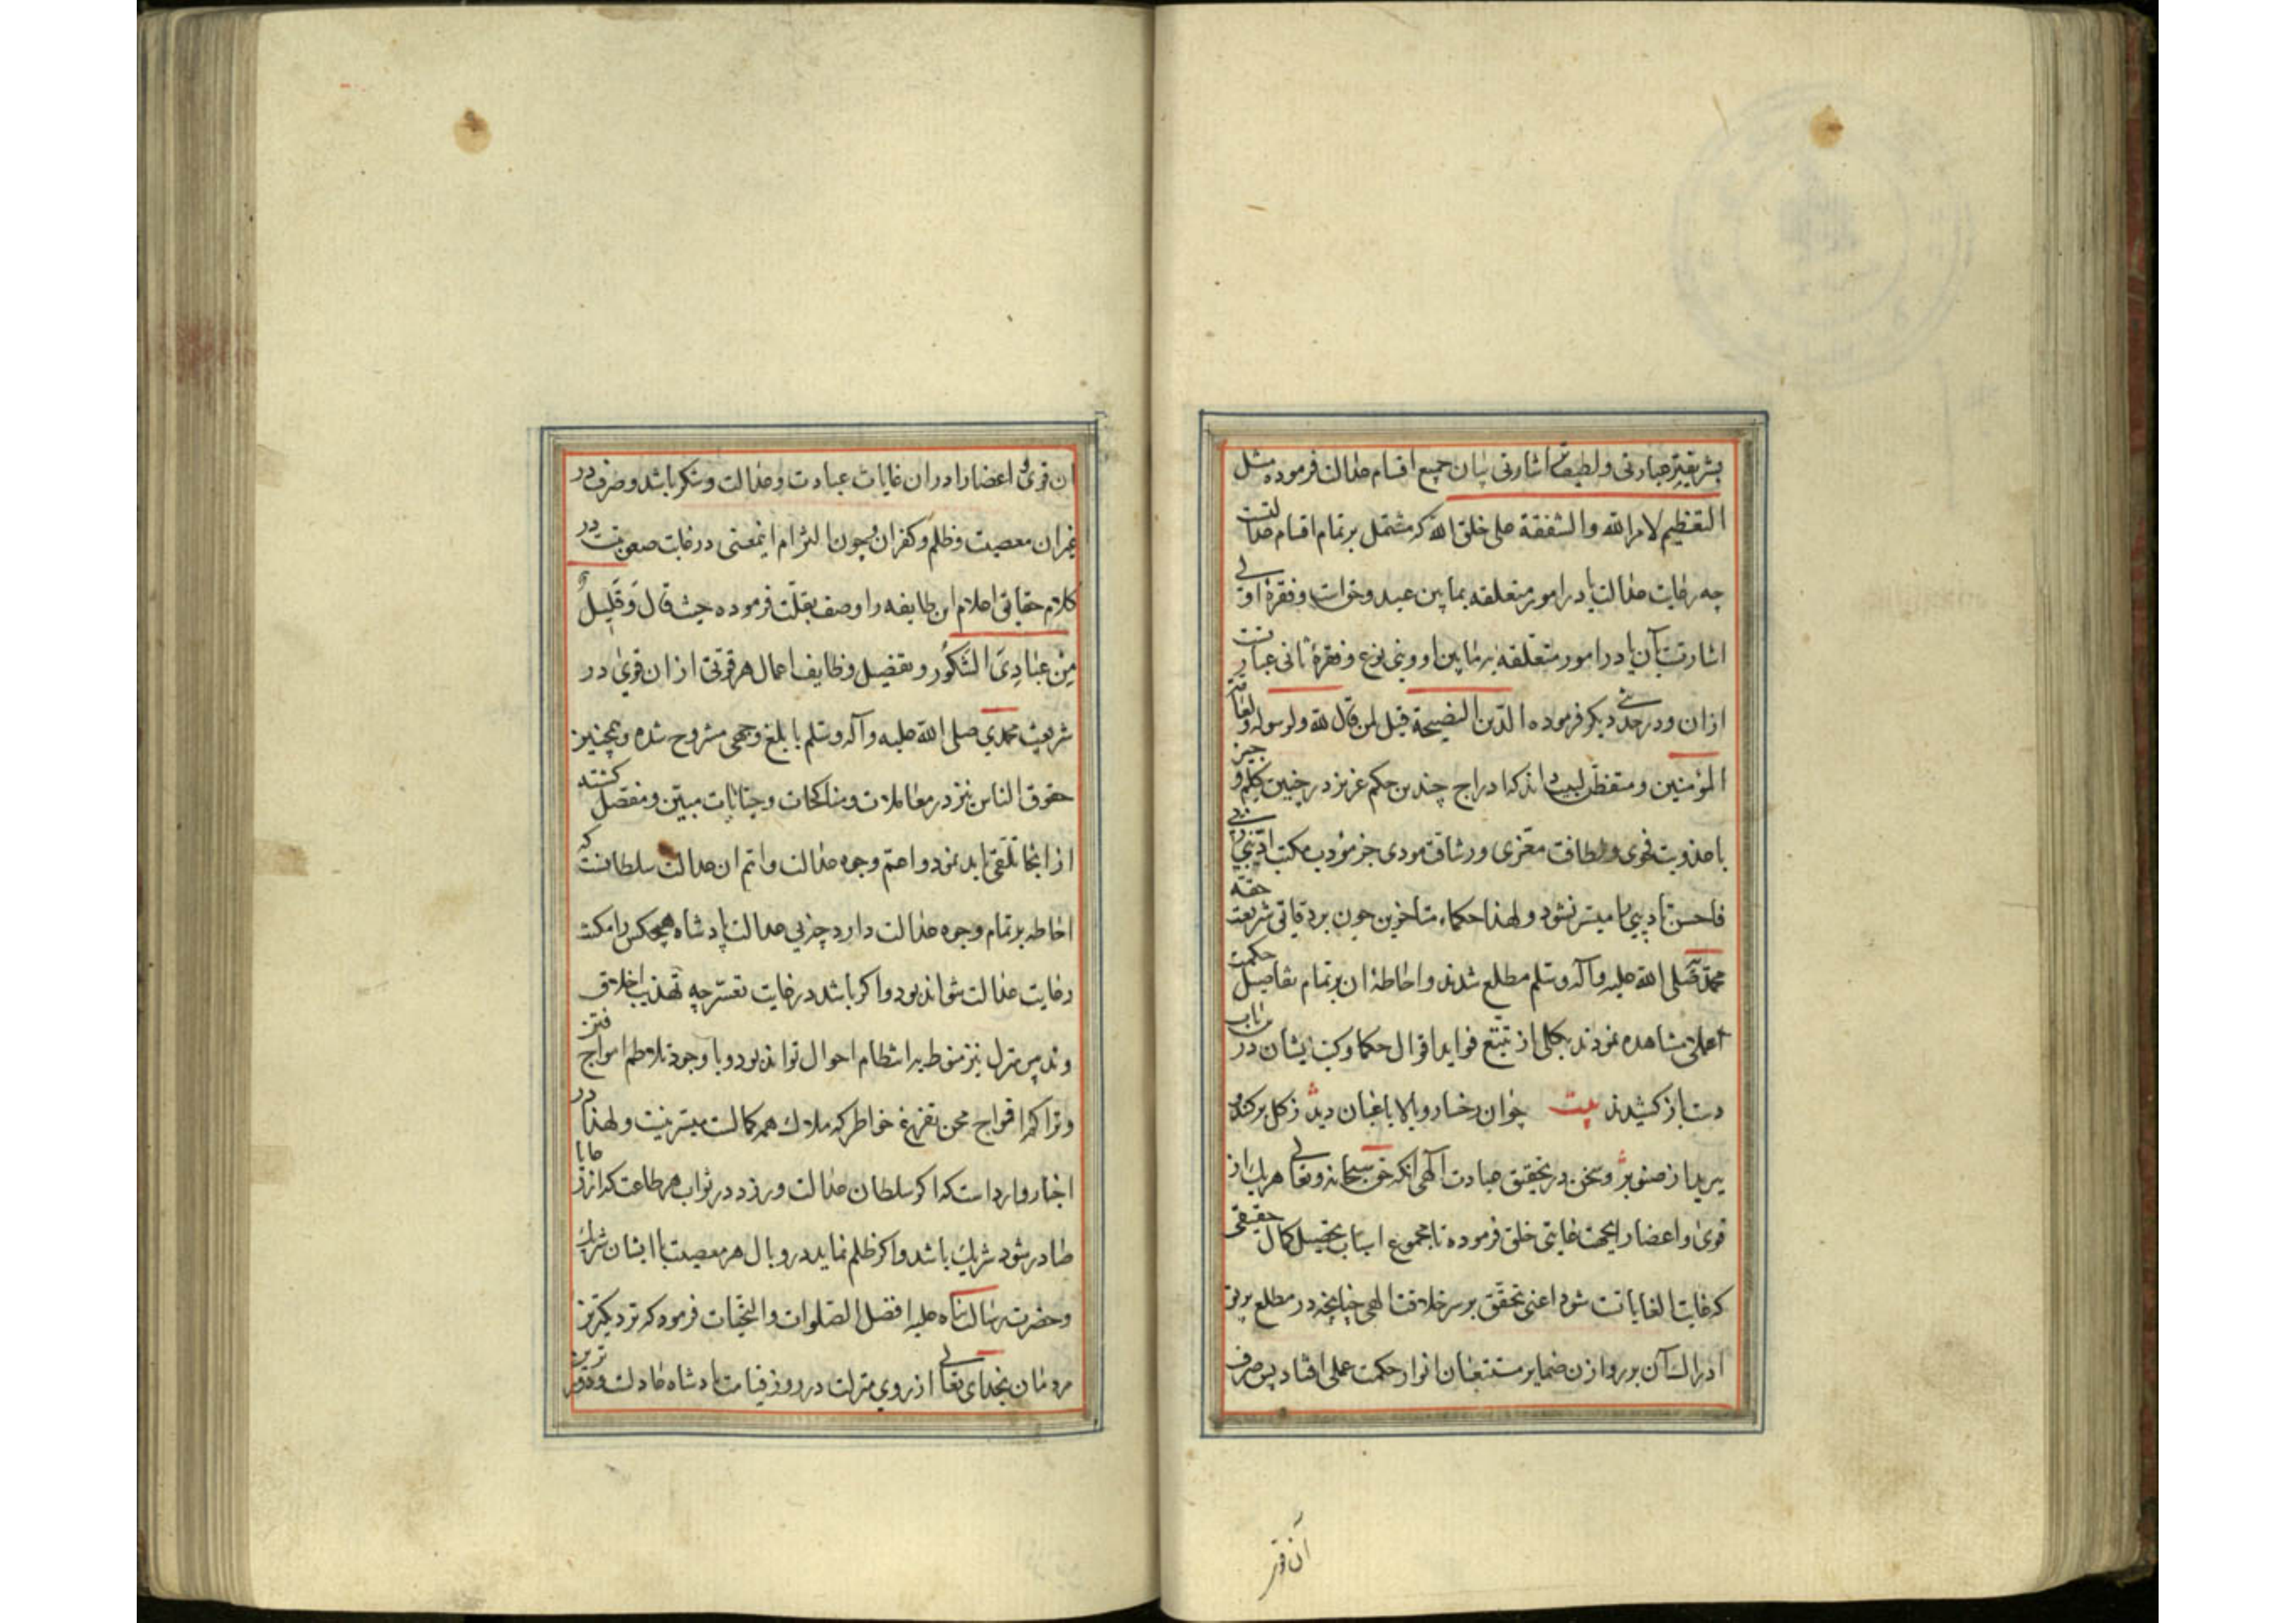 بشریفتر عبارتی و لطیفتر اشارتی بیان جمیع اقسام عدالت فرموده مثل
التعظیم لامر الله والشفقة علی خلق الله که مشتمل بر تمام اقسام عدالتست
چه رعایت عدالت یا در امور متعلقه بما بین عبد و حق است و فقرۀ اولی
اشارتست بآن یا در امور متعلقه بما بین او و بنی نوع و فقرۀ ثانی عبارتست
ازان و در حدیثی دیگر فرموده الدین النصیحة قیل لمن قال لله ولرسوله ولعامة
المؤمنین و متفطن لبیب داند که ادراج چندین حکم عزیز در چنین کلم وجیز
با عذوبت فحوی و لطافت مغزی و رشاقت مودی جز مؤدب مکتب ادبنی ربی
فاحسن تادیبی را میسر نشود و لهذا حکماء متاخرین چون بر دقایق شریعت حقه
محمدیه صلی الله علیه وآله وسلم مطلع شدند و احاطۀ ان بر تمام تفاصیل حکمت
عملی مشاهده نمودند بکلی از تتبع فواید اقوال حکما و کتب ایشان در ان باب
دست باز کشیدند بیت چو ان رخسار و بالا باغبان دید ز گل برکند
برید از صنوبر و سخن در تحقیق عبادت آنکه حق سبحانه وتعالی هر یک از
قوی و اعضا را بجهت غایتی خلق فرموده تا مجموع اسباب تحصیل کمال حقیقی
که غایت الغایاتست شود اعنی تحقق بسر خلافت الهی چنانچه در مطلع
ادراک آن بر روازن ضمایر مستتبعان انوار حکمت عملی افتاد پس صرف
آن قو
ان قوی و اعضا را دران غایات عبادت و عدالت و شکر باشد و صرف در
غیر ان معصیت و ظلم و کفران و چون التزام اینمعنی در غایت صعوبتست در
کلام حقایق اعلام این طایفه را وصف بقلت فرموده حیث قال وَقَلِیلٌ
مِنْ عِبَادِیَ الشَّکُورُ و تفصیل وظایف اعمال هر قوتی از ان قوی در
شریعت محمدی صلی الله علیه وآله وسلم بابلغ وجهی مشروح شده و همچنین
حقوق الناس نیز در معاملات و مناکحات و جنایات مبین و مفصل گشته
از انجا تلقی باید نمود و اعم وجوه عدالت و اتم ان عدالت سلطانست که
احاطه بر تمام وجوه عدالت دارد چه بی عدالت پادشاه هیچکس را مکنت
رعایت عدالت نتواند بود و اگر باشد در غایت تعسر چه تهذیب اخلاق
و تدبیر منزل نیز منوط بر انتظام احوال تواند بود و با وجود تلاطم امواج فتن
و تراکم افواج محن تفریغ خواطر که ملاک همه کمالست میسر نیست و لهذا در
اخبار وارد است که اگر سلطان عدالت ورزد در ثواب هر طاعت که از رعایا
صادر شود شریک باشد و اگر ظلم نماید در وبال هر معصیت با ایشان شریک
و حضرت رسالت پناه علیه افضل الصلوات والتحیات فرموده که نزدیکترین
مردمان بخدای تعالی از روی منزلت در روز قیامت پادشاه عادلست